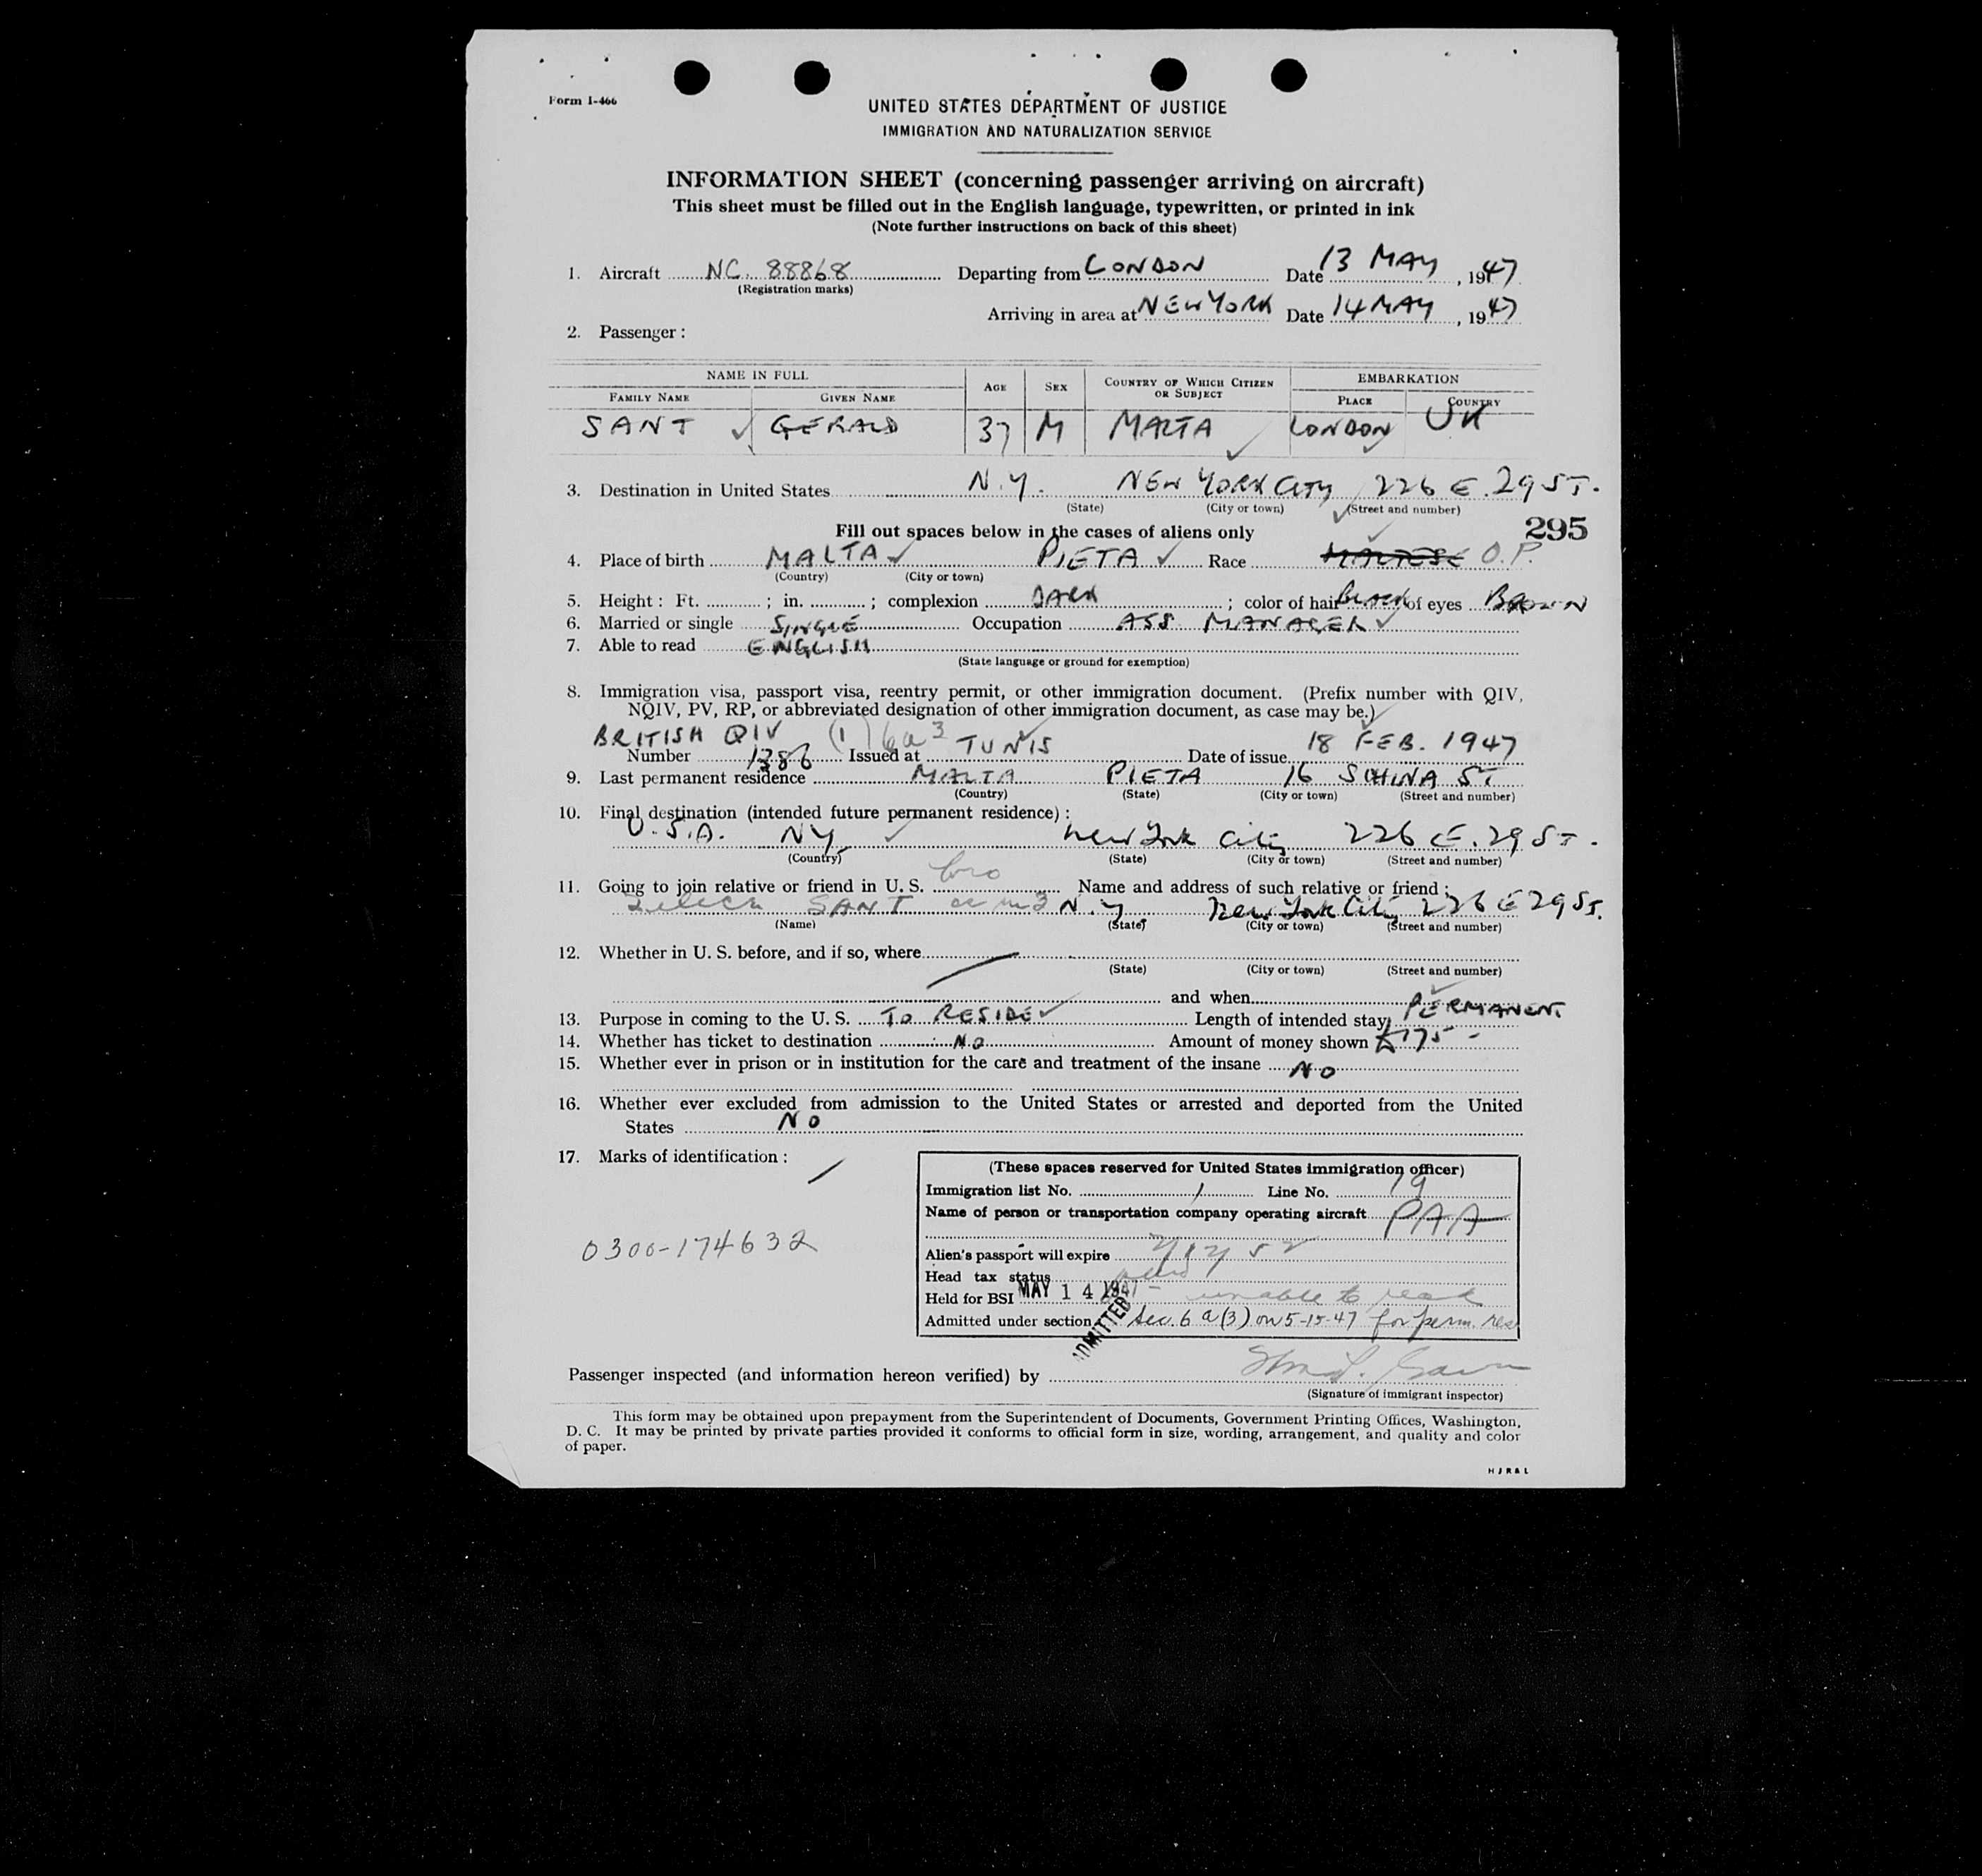 Form I-466
UNITED STATES DEPARTMENT OF JUSTICE
IMMIGRATION AND NATURALIZATION SERVICE
INFORMATION SHEET (concerning passenger arriving on aircraft)
This sheet must be filled out in the English language, typewritten, or printed in ink
(Note further instructions on back of this sheet)
1. Aircraft NC 88868 Departing from LONDON Date 13 MAY, 1947
(Registration marks)
Arriving in area at NEW YORK Date 14 MAY, 1947
2. Passenger:
NAME IN FULL AGE SEX COUNTRY OF WHICH CITIZEN OR SUBJECT EMBARKATION
FAMILY NAME GIVEN NAME PLACE COUNTRY
SANT GERALD 37 M MALTA LONDON UK
3. Destination in United States N.Y. NEW YORK CITY 226 E. 29 ST.
(State) (City or town) (Street and number)
Fill out spaces below in the cases of aliens only 295
4. Place of birth MALTA PIETA Race MALTESE O.P.
(Country) (City or town)
5. Height: Ft. ; in. ; complexion DARK ; color of hair black of eyes BROWN
6. Married or single SINGLE Occupation ASS MANAGER
7. Able to read ENGLISH
(State language or ground for exemption)
8. Immigration visa, passport visa, reentry permit, or other immigration document. (Prefix number with QIV,
NQIV, PV, RP, or abbreviated designation of other immigration document, as case may be.)
BRITISH QIV (1) 6a3
Number 1386 Issued at TUNIS Date of issue 18 FEB. 1947
9. Last permanent residence MALTA PIETA 16 SCHINA ST
(Country) (State) (City or town) (Street and number)
10. Final destination (intended future permanent residence):
U.S.A. NY New York City 226 E. 29 ST.
(Country) (State) (City or town) (Street and number)
11. Going to join relative or friend in U. S. bro Name and address of such relative or friend:
SANT N.Y. New York City 226 E 29 ST.
(Name) (State) (City or town) (Street and number)
12. Whether in U. S. before, and if so, where
(State) (City or town) (Street and number)
and when
13. Purpose in coming to the U. S. TO RESIDE Length of intended stay PERMANENT
14. Whether has ticket to destination NO Amount of money shown 175 -
15. Whether ever in prison or in institution for the care and treatment of the insane NO
16. Whether ever excluded from admission to the United States or arrested and deported from the United
States NO
17. Marks of identification:
(These spaces reserved for United States immigration officer)
Immigration list No. 1 Line No. 19
Name of person or transportation company operating aircraft PAA
0300-174632
Alien's passport will expire
Head tax status
Held for BSI MAY 14 1947 - unable to read
Admitted under section ADMITTED Sec. 6 a(3) on 5-15-47 for perm. res
Passenger inspected (and information hereon verified) by
(Signature of immigrant inspector)
This form may be obtained upon prepayment from the Superintendent of Documents, Government Printing Offices, Washington,
D. C. It may be printed by private parties provided it conforms to official form in size, wording, arrangement, and quality and color
of paper.
HJR&L